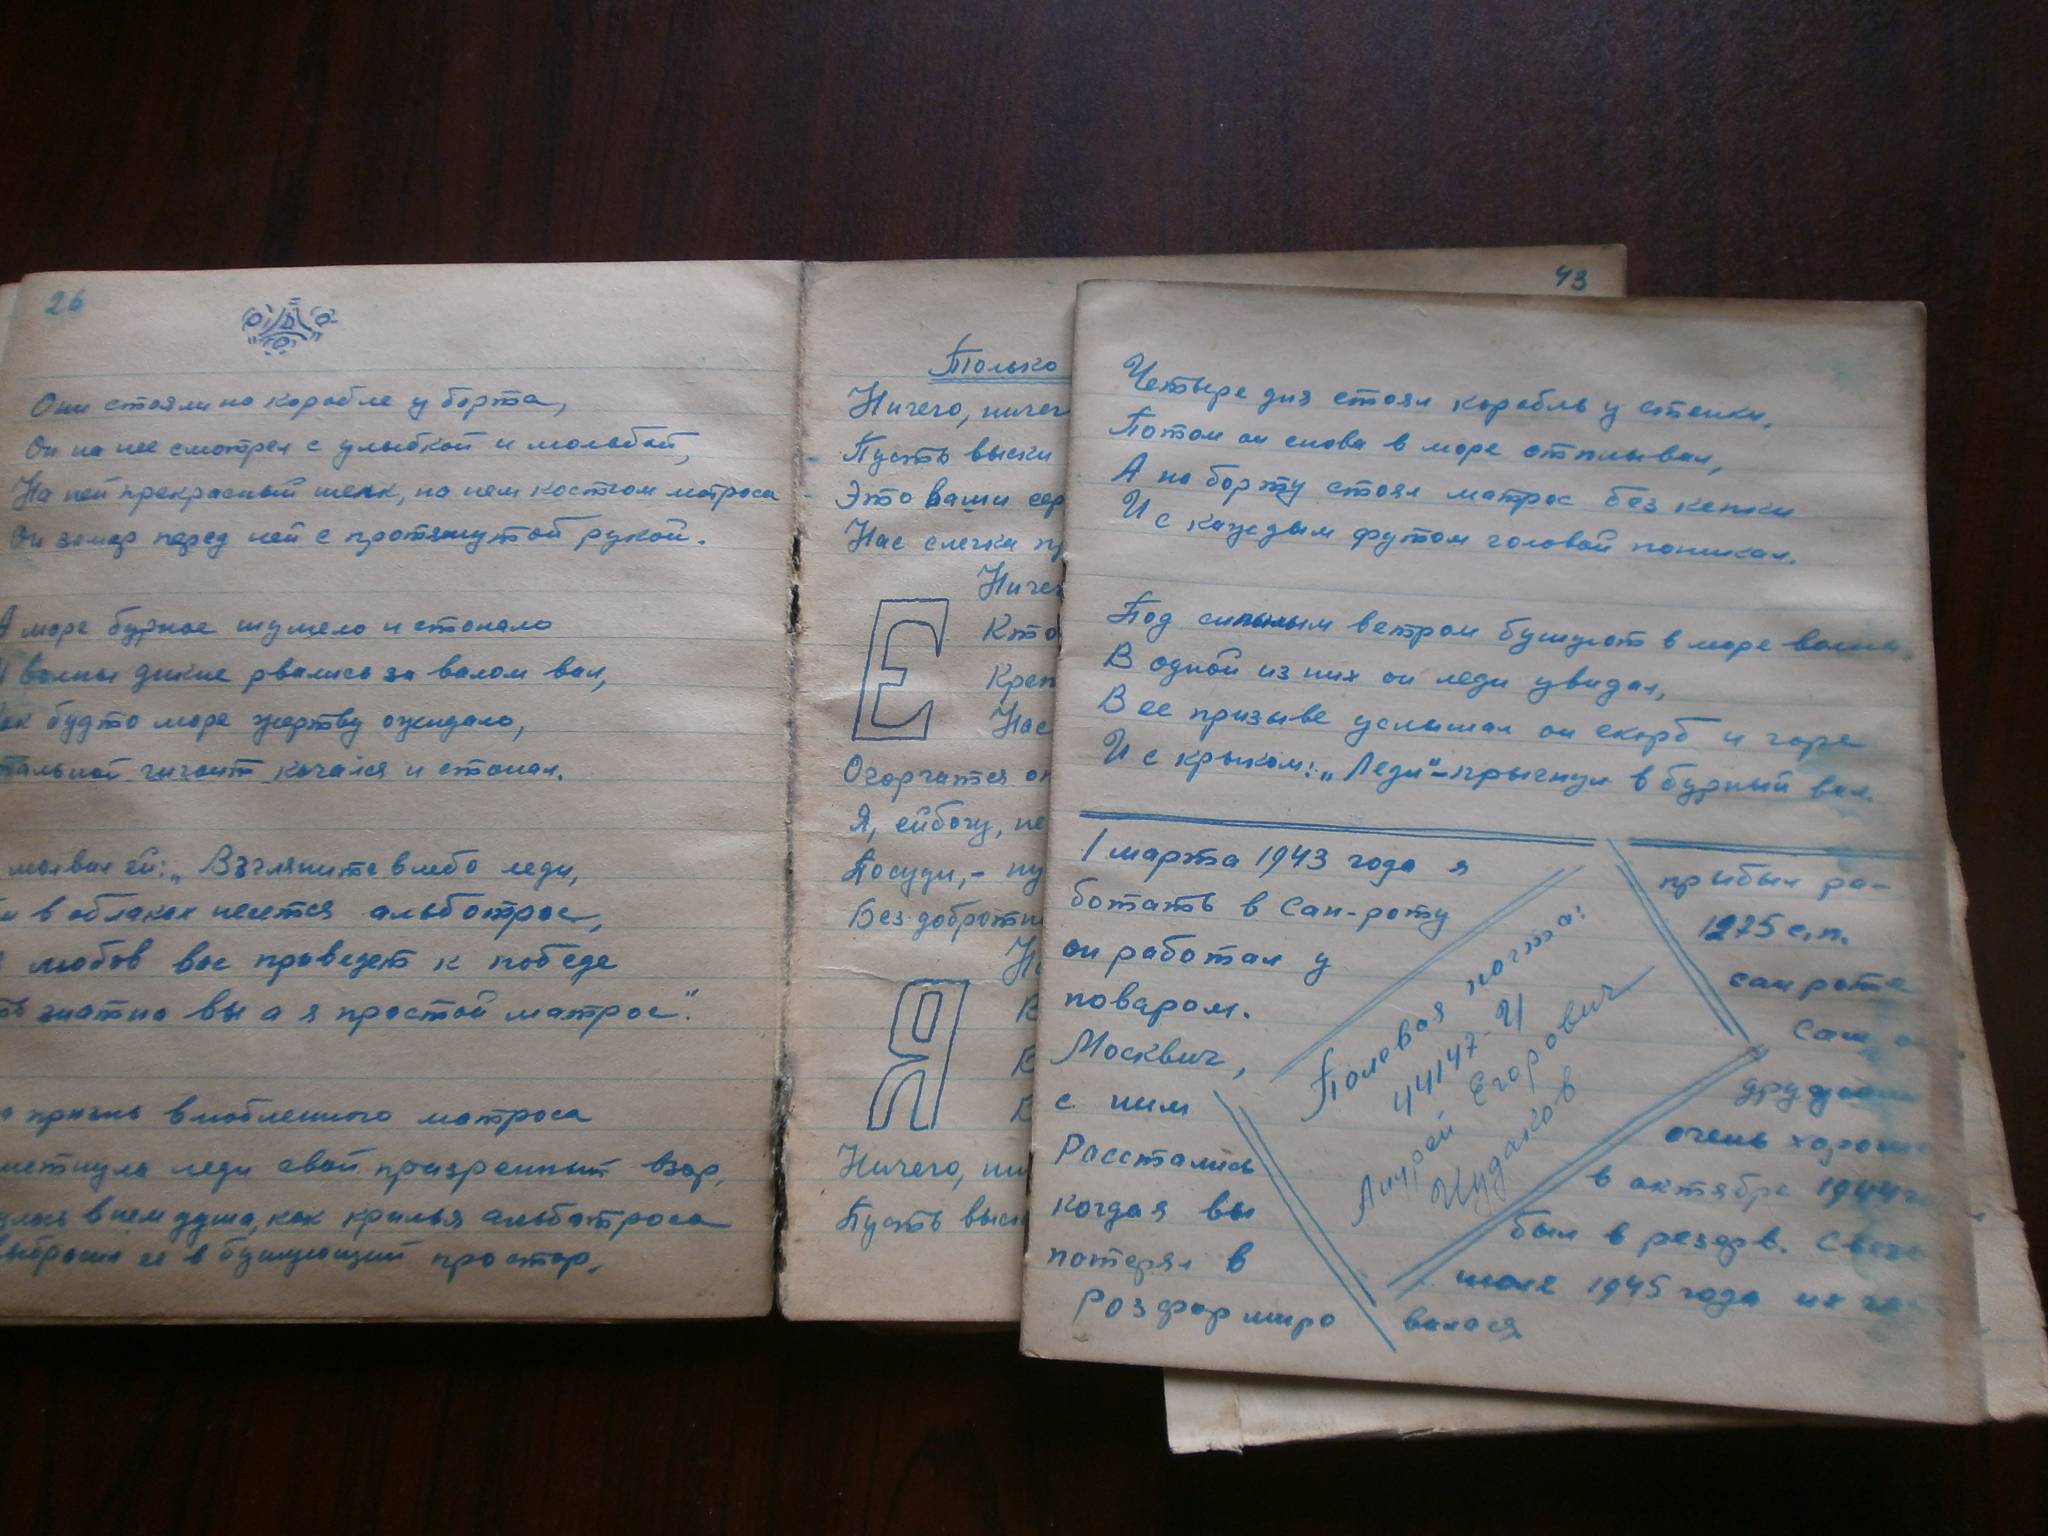 26
Они стояли на корабле у борта,
Он на нее смотрел с улыбкой и мольбой,
На ней прекрасный шелк, на нем костюм матроса
Он замер перед ней с протянутой рукой.
А море бурное шумело и стонало
волны дикие рвались за валом вал,
как будто море жертву ожидало,
стальной гигант качался и стонал.
молвил ей: „Взгляните в небо леди,
в облаках несется альботрос,
любов вас приведет к победе
знатна вы а я простой матрос".
призыв влюбленного матроса
метнула леди свой призренный взор,
в нем душа, как крилья альботроса
выбросил ее в бушующий простор,
43
Только
Ничего, ничег
Пусть выски
Это ваши сер
Нас слегка пр
Ничег
Е
Кто
Креп
Нас
Огорчатся он
Я, ейбогу, не
Посуди, - пу
Без добротн
Н
Я
В
В
В
Ничего, ни
Пусть выск
Четыре дня стоял корабль у стенки,
Потом он снова в море отплывал,
А на борту стоял матрос без кепки
И с каждым футом головой поникал.
Под сильным ветром бушуют в море волны,
В одной из них он леди увидал,
В ее призыве услышал он скорб и горе
И с крыком: „Леди"-прыгнул в бурный вал.
1 марта 1943 года я прибыл ра-
ботать в Сан-роту 1275 с.п.
он работал у сан роте
поваром. Сам
Москвич, друужили
с ним очень хорошо
Расстались в октябре 1944 г
когда я вы был в резерв. Связь
потерял в июле 1945 года их ча
Розформиро валася
Полевая почта:
44147-И
Андрей Егорович
Чудаков